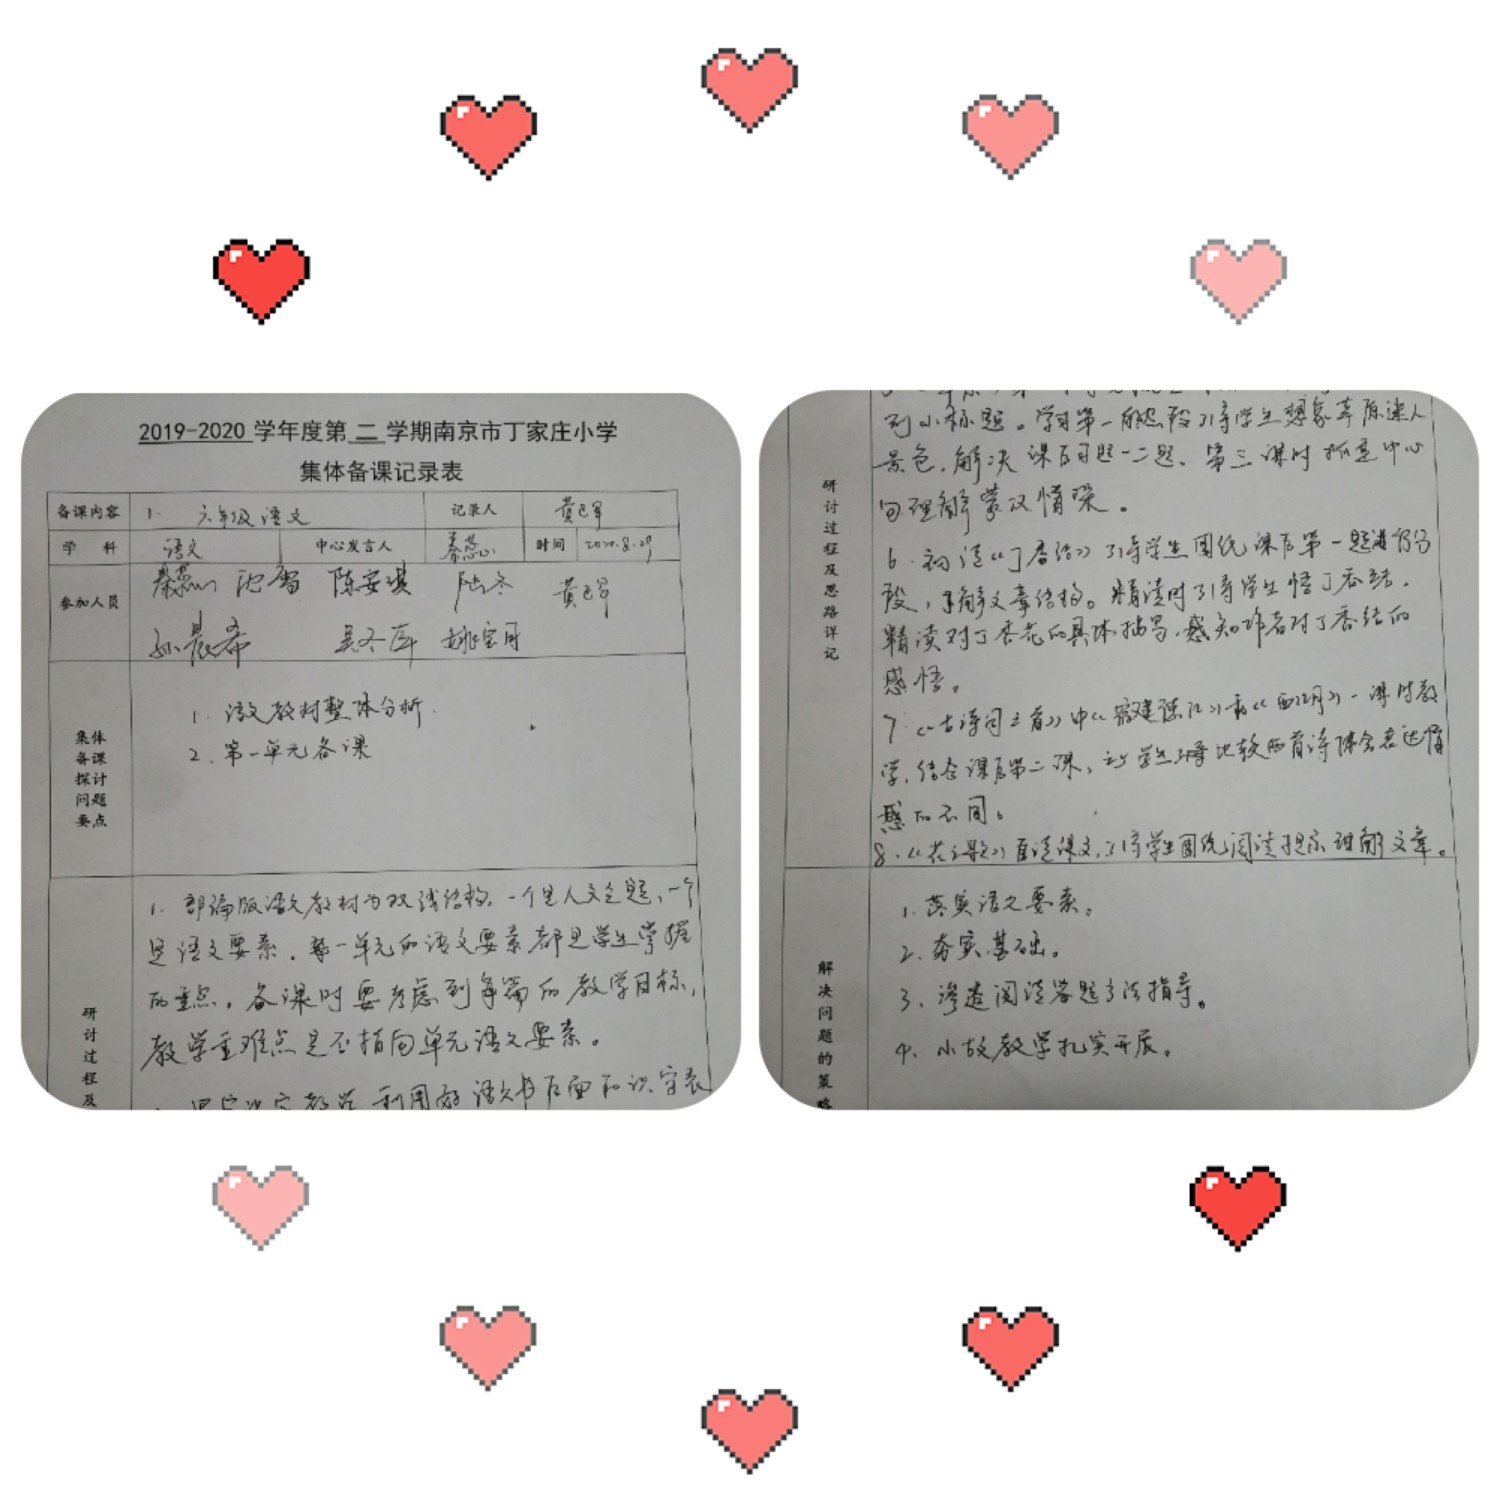 2019-2020 学年度第 二 学期南京市丁家庄小学
集体备课记录表
备课内容 1. 六年级语文 记录人
学 科 语文 中心发言人 秦蕊 时间 2020.8.29
参加人员 秦蕊 沈雪 陈安琪 陆冬
孙晨希
集体备课探讨问题要点
1. 语文教材整体分析.
2. 第一单元备课
研讨过程及
1. 部编版语文教材为双线结构，一个是人文主题，一个
是语文要素。每一单元的语文要素都是学生掌握
的重点。备课时要考虑到每篇的教学目标，
教学重难点是否指向单元语文要素。
识字教学 利用好语文书后面的识字表
研讨过程及思路详记
列小标题。学习第一自然段引导学生想象草原迷人
景色，解决课后习题一二题。第三课时抓住中心
句理解蒙汉情深。
6. 初读《丁香结》引导学生围绕课后第一题进行分
段，了解文章结构。精读时引导学生悟丁香结，
精读对丁香花的具体描写，感知作者对丁香结的
感悟。
7.《古诗词三首》中《宿建德江》和《西江月》一课时教
学，结合课后第二题，让学生比较两首诗体会表达情
感的不同。
8.《花之歌》自读课文，引导学生围绕阅读提示理解文章。
解决问题的策略
1. 落实语文要素。
2. 夯实基础。
3. 渗透阅读答题方法指导。
4. 小故教学扎实开展。